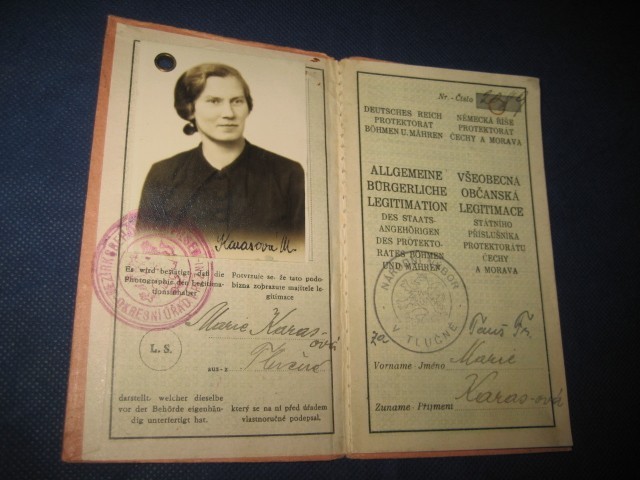 Karasová M
Es wird bestätigt, daß die
Photographie den Legitima-
tionsinhaber
Potvrzuje se, že tato podo-
bizna zobrazuje majitele le-
gitimace
OKRESNÍ ÚŘAD
Marie Karas-
ová
L. S.
aus - z
darstellt, welcher dieselbe
vor der Behörde eigenhän-
dig unterfertigt hat.
který se na ní před úřadem
vlastnoručně podepsal.
Nr. - Číslo
DEUTSCHES REICH
PROTEKTORAT
BÖHMEN U. MÄHREN
NĚMECKÁ ŘÍŠE
PROTEKTORÁT
ČECHY A MORAVA
ALLGEMEINE
BÜRGERLICHE
LEGITIMATION
DES STAATS-
ANGEHÖRIGEN
DES PROTEKTO-
RATES BÖHMEN
UND MÄHREN
VŠEOBECNÁ
OBČANSKÁ
LEGITIMACE
STÁTNÍHO
PŘÍSLUŠNÍKA
PROTEKTORÁTU
ČECHY
A MORAVA
NÁRODNÍ VÝBOR
V TLUČNÉ
za
Vorname Jméno Marie
Zuname Příjmení Karas-ová